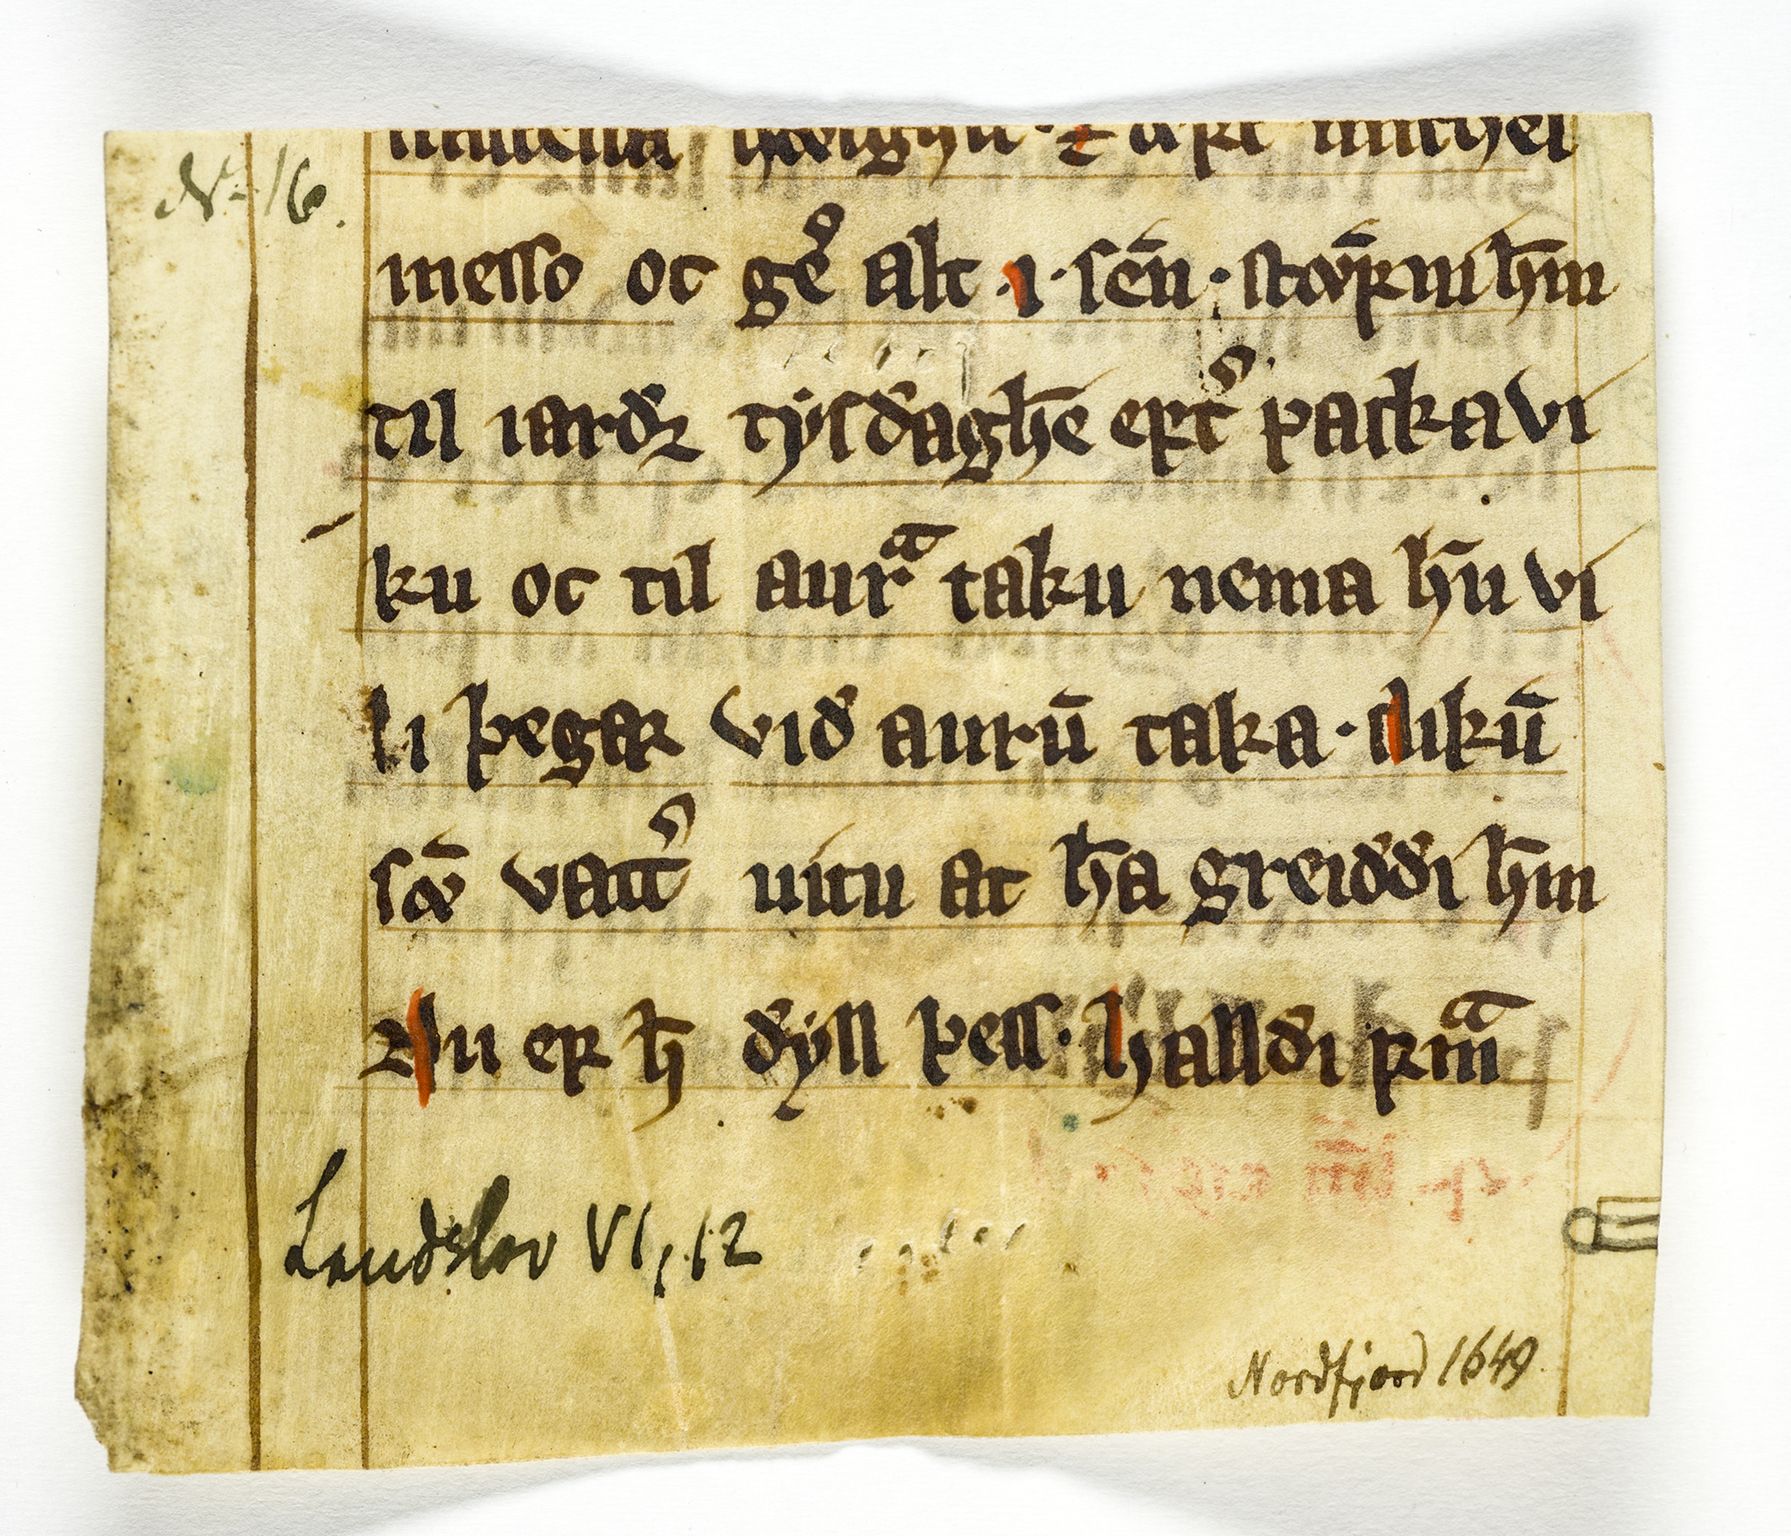 No 16.
messo oc ge͛ alt ·ı· sēn · stæfni h̅m
til iarðꝛ tysdaghe̅ eft͛ packa vi
ku oc til aurͣ taku nema h̅n vi
li þegar við aurū taka · slikū
sǣ vatt͛ uitu at h̅a greiddi h̅m
Nu er h̅ dyll þess · halldi fͣm
Landslov VI, 12
Nordfjord 1649.